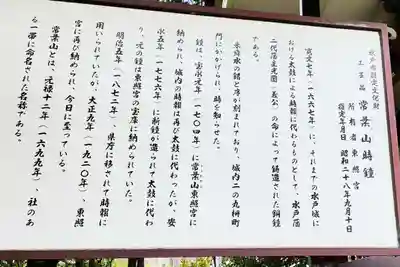 水戸市指定文化財
工芸品 常葉山時鐘
所有者 東照宮
指定年月日 昭和二十八年九月十日
寛文七年(一六六七年)に、それまでの水戸城に
おける太鼓による時報に代わるものとして、水戸藩
二代藩主光圀(義公)の命によって鋳造された銅鐘
である。
朱舜水の銘と序が刻まれており、城内二の丸柵町
門にかかげられ、時を知らせた。
鐘は、宝永元年(一七〇四年)に常葉山東照宮に
納められ、城内の時報は再び太鼓に代わったが、安
永五年(一七七六年)に新鐘が造られて太鼓に代わ
り、元の鐘は東照宮の宝庫に納められていた。
明治五年(一八七二年)、県庁に移されて時報に
用いられていたが、大正九年(一九二〇年)、東照
宮に再び納められ、今日に至っている。
常葉山とは、元禄十二年(一六九九年)、社のあ
る一帯に命名された名称である。